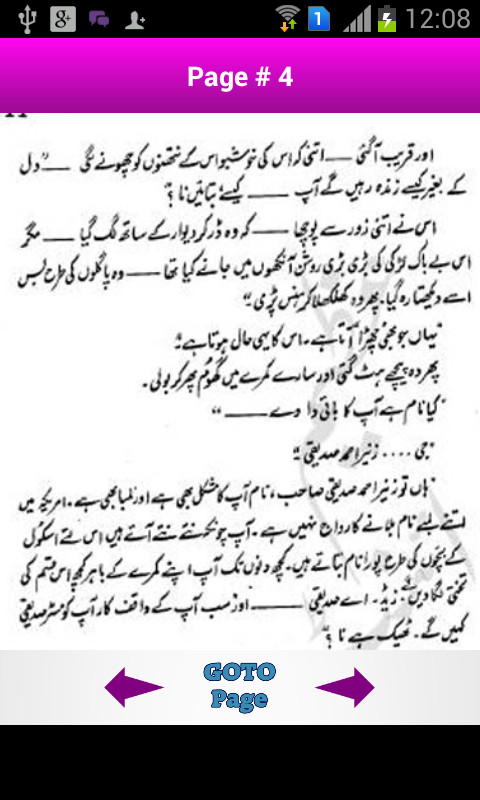 12:08
1
Page # 4
اور قریب آ گئی ــــ اتنی کہ اس کی خوشبو اس کے نتھنوں کو چھونے لگی ــــ "دل
کے بغیر کیسے زندہ رہیں گے آپ ــــ کیسے؟ بتائیں نا؟"
اس نے اتنی زور سے پوچھا ــــ کہ وہ ڈر کر دیوار کے ساتھ لگ گیا ــــ مگر
اس بے باک لڑکی کی بڑی بڑی روشن آنکھوں میں جانے کیا تھا ــــ وہ پاگلوں کی طرح بس
اسے دیکھتا رہ گیا۔ پھر وہ کھلکھلا کر ہنس پڑی۔"
"یہاں جو بھی چھڑا آتا ہے۔ اس کا یہی حال ہوتا ہے"
پھر وہ پیچھے ہٹ گئی اور سارے کمرے میں گھوم پھر کر بولی۔
"کیا نام ہے آپ کا بائی دا وے ــــ"
"جی .... زنیر احمد صدیقی"
"ہاں تو زنیر احمد صدیقی صاحب، نام آپ کا مشکل بھی ہے اور لمبا بھی ہے۔ امریکہ میں
اتنے لمبے نام بلانے کا رواج نہیں ہے۔ آپ چونکہ نئے نئے آئے ہیں اس لئے اسکول
کے بچوں کی طرح پورا نام بتاتے ہیں۔ کچھ دنوں تک آپ اپنے کمرے کے باہر کچھ اس قسم کی
تختی لگا دیں گے۔ زیڈ۔ اے صدیقی ــــ اور سب آپ کے واقف کار آپ کو مسٹر صدیقی
کہیں گے۔ ٹھیک ہے نا؟"
GOTO
Page